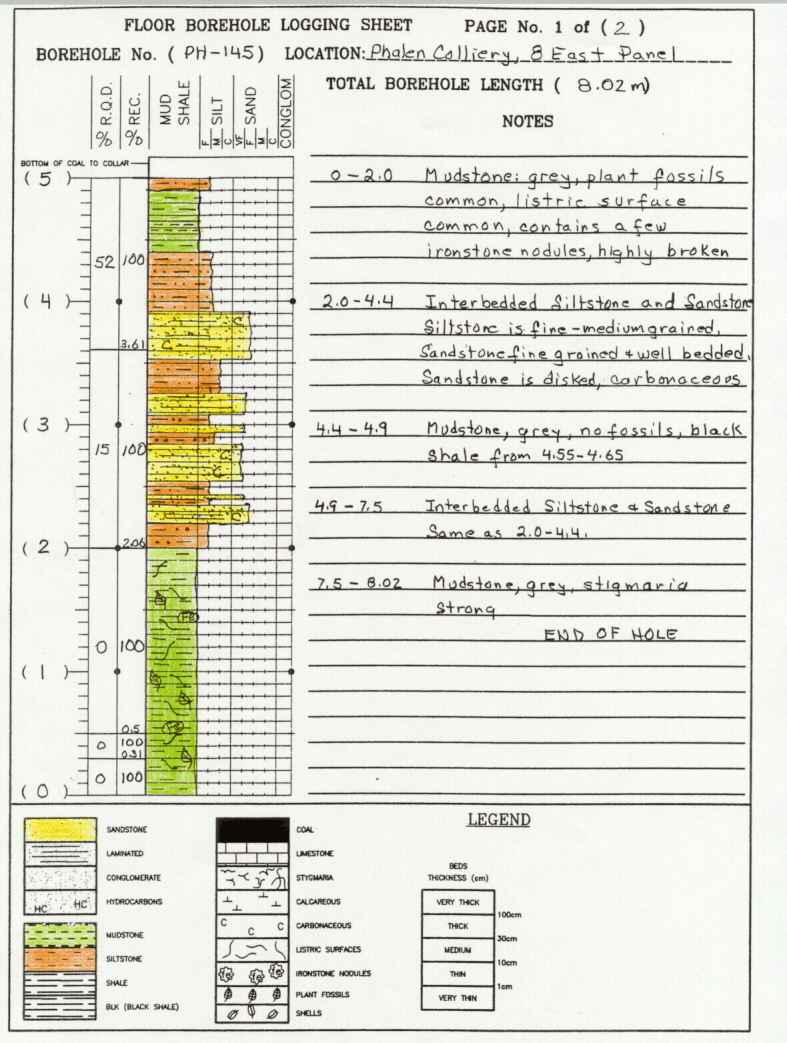 FLOOR BOREHOLE LOGGING SHEET PAGE No. 1 of ( 2 )
BOREHOLE No. ( PH-145) LOCATION: Phalen Colliery, 8 East Panel
TOTAL BOREHOLE LENGTH ( 8.02m)
NOTES
% R.Q.D.
% REC.
MUD SHALE
SILT
SAND
CONGLOM
F M C VF F M C
BOTTOM OF COAL TO COLLAR
( 5 )
0-2.0 Mudstone: grey, plant fossils
common, listric surface
common, contains a few
ironstone nodules, highly broken
52 100
( 4 )
2.0-4.4 Interbedded Siltstone and Sandstone
Siltstone is fine-medium grained,
Sandstone fine grained + well bedded,
Sandstone is disked, carbonaceous
C
C
3.61
( 3 )
4.4-4.9 Mudstone, grey, no fossils, black
Shale from 4.55-4.65
15 100
C
C
4.9-7.5 Interbedded Siltstone & Sandstone
Same as 2.0-4.4.
C
( 2 )
2.06
7.5-8.02 Mudstone, grey, stigmaria
Strong
END OF HOLE
Fe
0 100
( 1 )
Fe
0.5
0 100
0.31
0 100
( 0 )
LEGEND
SANDSTONE
LAMINATED
CONGLOMERATE
HYDROCARBONS
HC HC
MUDSTONE
SILTSTONE
SHALE
BLK (BLACK SHALE)
COAL
LIMESTONE
STYGMARIA
CALCAREOUS
CARBONACEOUS
C C C
LISTRIC SURFACES
IRONSTONE NODULES
PLANT FOSSILS
SHELLS
BEDS
THICKNESS (cm)
VERY THICK
100cm
THICK
30cm
MEDIUM
10cm
THIN
1cm
VERY THIN